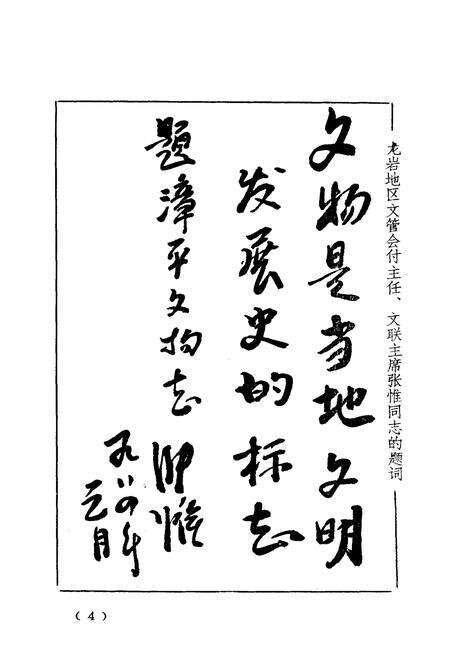 龙岩地区文管会付主任、文联主席张惟同志的题词
文物是当地文明
发展史的标志
题漳平文物志
张惟
一九八四年
元月
（4）